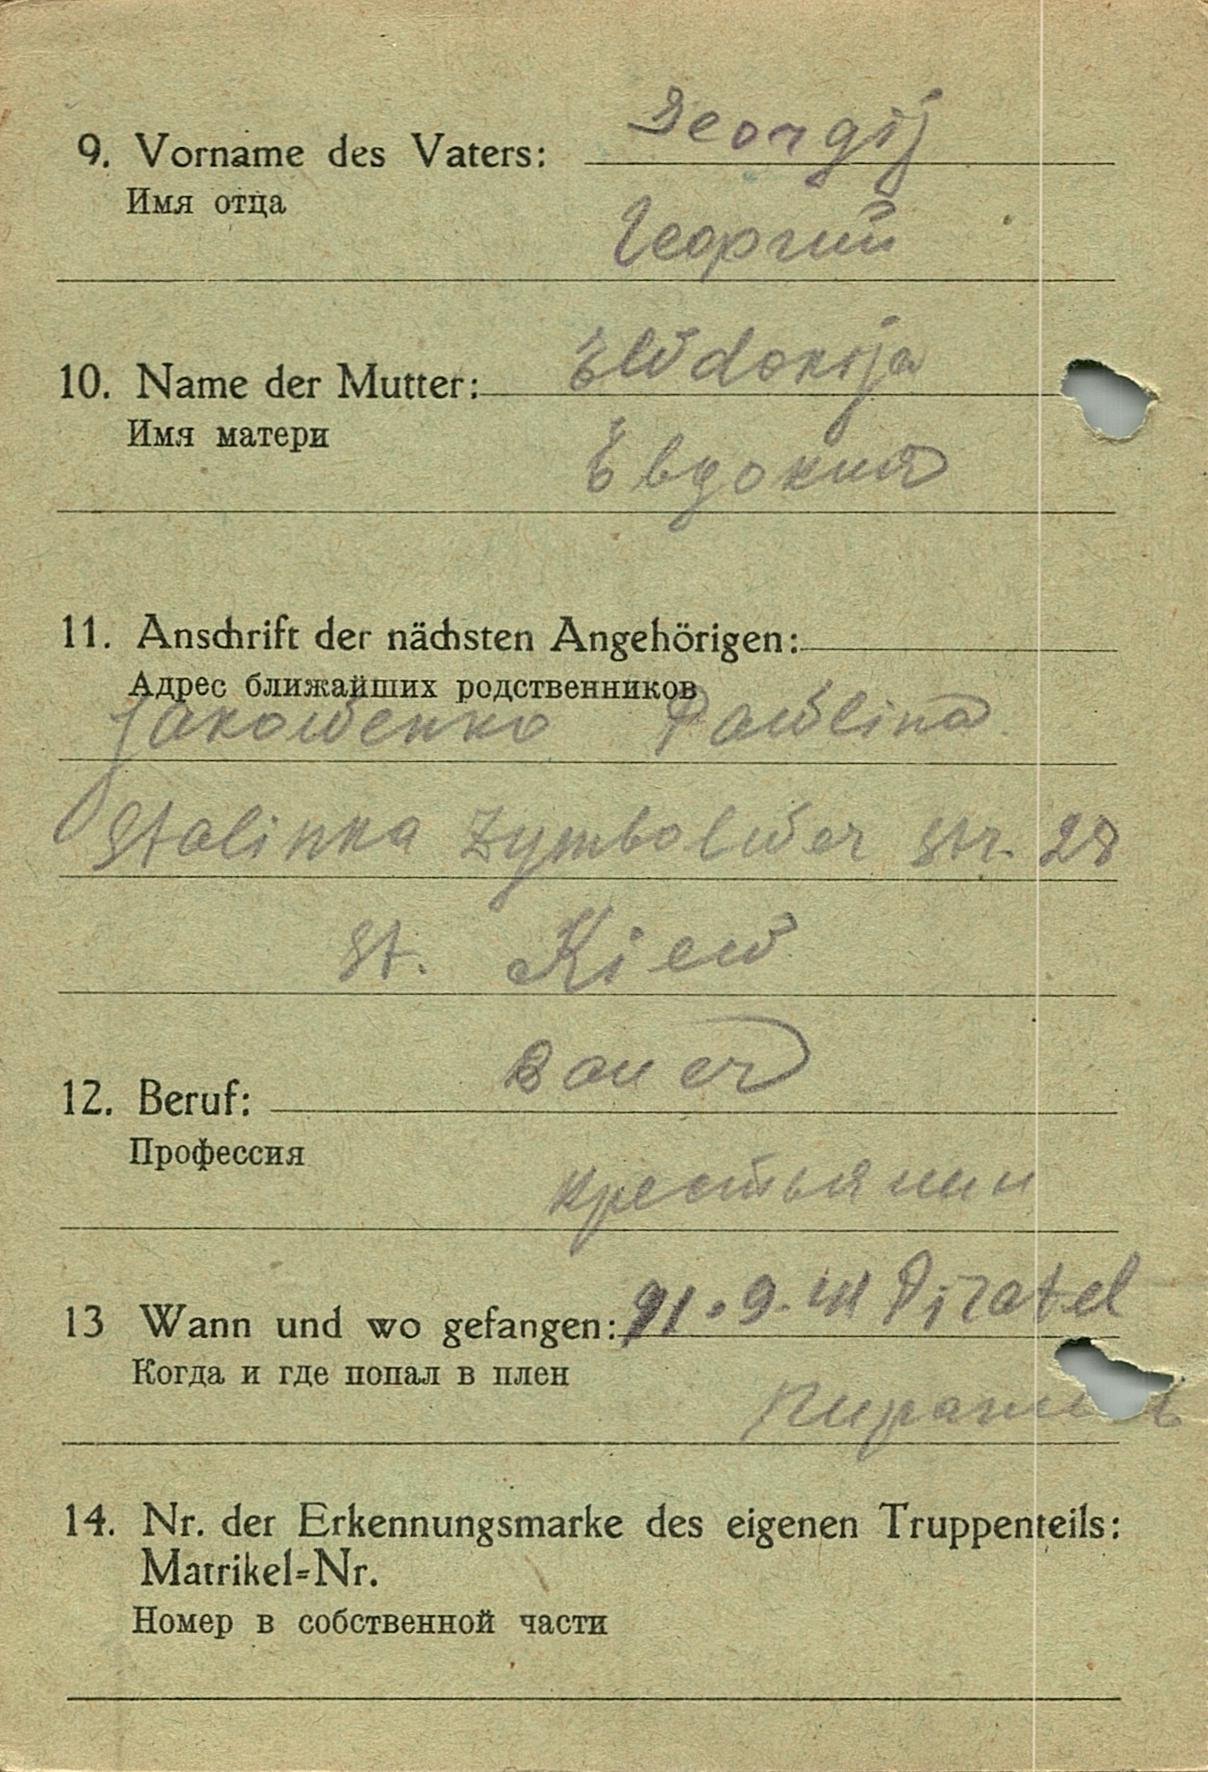 9. Vorname des Vaters: Georgij
Имя отца
Георгий
10. Name der Mutter: Ewdokija
Имя матери
Евдокия
11. Anschrift der nächsten Angehörigen:
Адрес ближайших родственников
Jakowenko Pawlina
Stalinka Zymbolwer Str. 28
St. Kiew
12. Beruf: Bauer
Профессия
крестьянин
13 Wann und wo gefangen: 21.9.41 Piratel
Когда и где попал в плен
14. Nr. der Erkennungsmarke des eigenen Truppenteils:
Matrikel=Nr.
Номер в собственной части